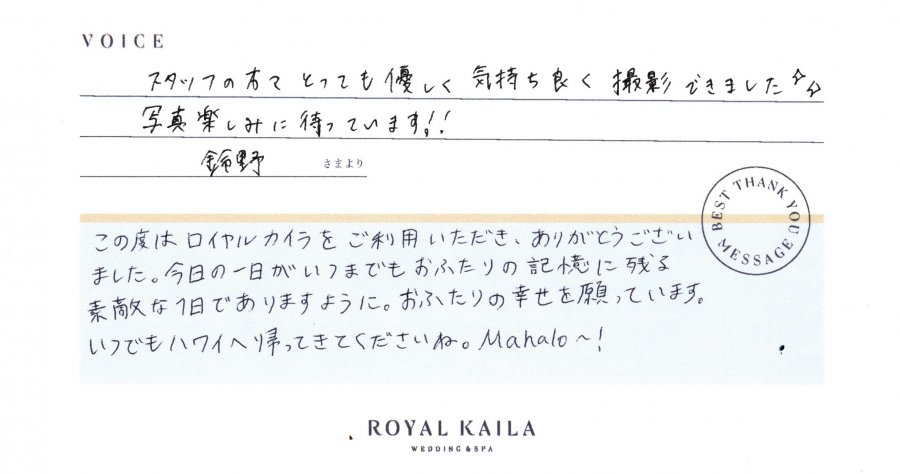 VOICE
スタッフの方て とっても優しく 気持ち良く 撮影 できました✧✧
写真楽しみに待っています!!
鈴野 さまより
BEST THANK YOU MESSAGE
この度はロイヤルカイラをご利用いただき、ありがとうござい
ました。今日の一日がいつまでもおふたりの記憶に残る
素敵な1日でありますように。おふたりの幸せを願っています。
いつでもハワイへ帰ってきてくださいね。Mahalo~!
ROYAL KAILA
WEDDING & SPA